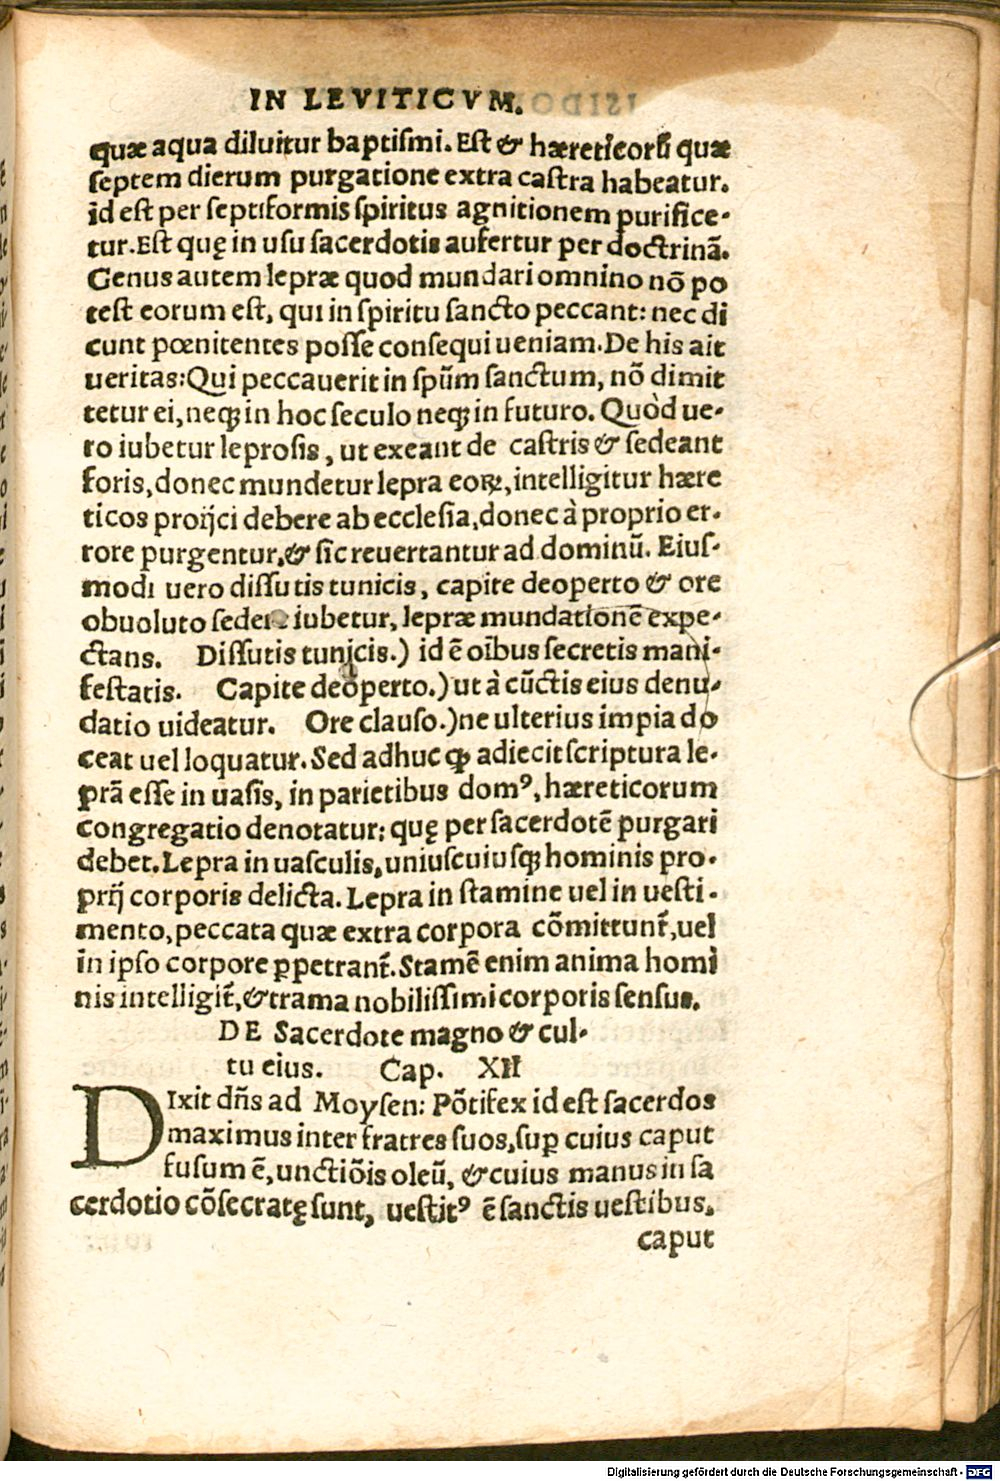 IN LEVITICVM.
quæ aqua diluitur baptiſmi. Eſt & hæreticorũ quæ
ſeptem dierum purgatione extra caſtra habeatur.
id eſt per ſeptiformis ſpiritus agnitionem purifice-
tur. Eſt quę in uſu ſacerdotis aufertur per doctrinã.
Genus autem lepræ quod mundari omnino nõ po
teſt eorum eſt, qui in ſpiritu ſancto peccant: nec di
cunt pœnitentes poſſe conſequi ueniam. De his ait
ueritas: Qui peccauerit in ſpũm ſanctum, nõ dimit
tetur ei, neqꝫ in hoc ſeculo neqꝫ in futuro. Quòd ue-
ro iubetur leproſis, ut exeant de caſtris & ſedeant
foris, donec mundetur lepra eoꝝ, intelligitur hære
ticos proijci debere ab eccleſia, donec à proprio er-
rore purgentur, & ſic reuertantur ad dominũ. Eiuſ-
modi uero diſſutis tunicis, capite deoperto & ore
obuoluto ſedere iubetur, lepræ mundationẽ expe-
ctans. Diſſutis tunicis.) id ẽ oĩbus ſecretis mani-
feſtatis. Capite deoperto.) ut à cũctis eius denu-
datio uideatur. Ore clauſo.) ne ulterius impia do
ceat uel loquatur. Sed adhuc ꝙ adiecit ſcriptura le-
prã eſſe in uaſis, in parietibus domꝰ, hæreticorum
congregatio denotatur: quę per ſacerdotẽ purgari
debet. Lepra in uaſculis, uniuſcuiuſqꝫ hominis pro-
prij corporis delicta. Lepra in ſtamine uel in ueſti-
mento, peccata quæ extra corpora cõmittunt̃, uel
in ipſo corpore ꝑpetrant̃. Stamẽ enim anima homi
nis intelligit̃, & trama nobiliſſimi corporis ſenſus.
DE Sacerdote magno & cul-
tu eius. Cap. XII
DIxit dñs ad Moyſen: Põtifex id eſt ſacerdos
maximus inter fratres ſuos, ſuꝑ cuius caput
fuſum ẽ, unctiõis oleũ, & cuius manus in ſa
cerdotio cõſecratę ſunt, ueſtitꝰ ẽ ſanctis ueſtibus.
caput
Digitalisierung gefördert durch die Deutsche Forschungsgemeinschaft - DFG